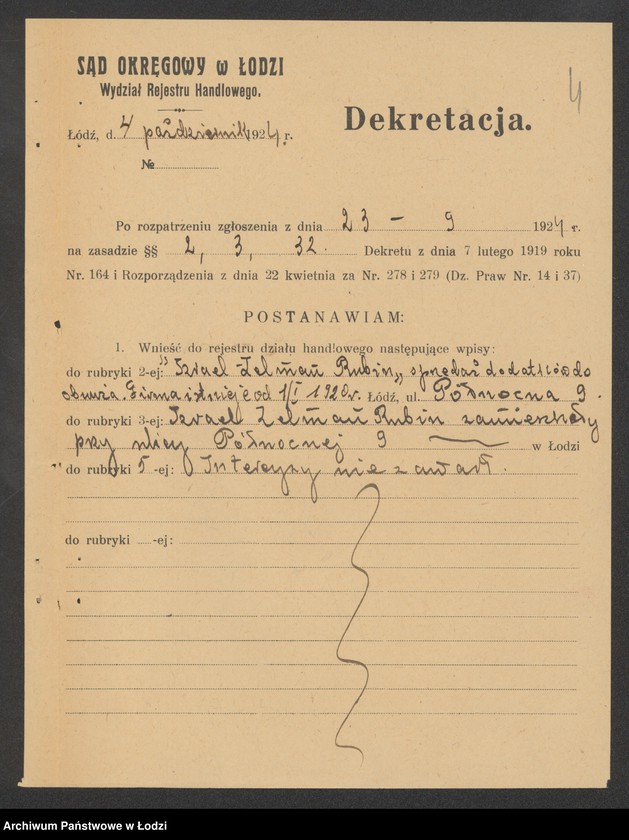 SĄD OKRĘGOWY w ŁODZI
Wydział Rejestru Handlowego.
4
Dekretacja.
Łódź, d. 4 październik 1924 r.
№
Po rozpatrzeniu zgłoszenia z dnia 23 – 9 1924 r.
na zasadzie §§ 2, 3, 32. Dekretu z dnia 7 lutego 1919 roku
Nr. 164 i Rozporządzenia z dnia 22 kwietnia za Nr. 278 i 279 (Dz. Praw Nr. 14 i 37)
POSTANAWIAM:
1. Wnieść do rejestru działu handlowego następujące wpisy:
do rubryki 2-ej: "Izrael Zelman Rubin„ sprzedaż dodatków do
obuwia. Firma istnieje od 1/I 1920 r. Łódź, ul. Północna 9.
do rubryki 3-ej: Izrael Zelman Rubin zamieszkały
przy ulicy Północnej 9 w Łodzi
do rubryki 5-ej: Intercyzy nie zawarł.
do rubryki -ej:
Archiwum Państwowe w Łodzi